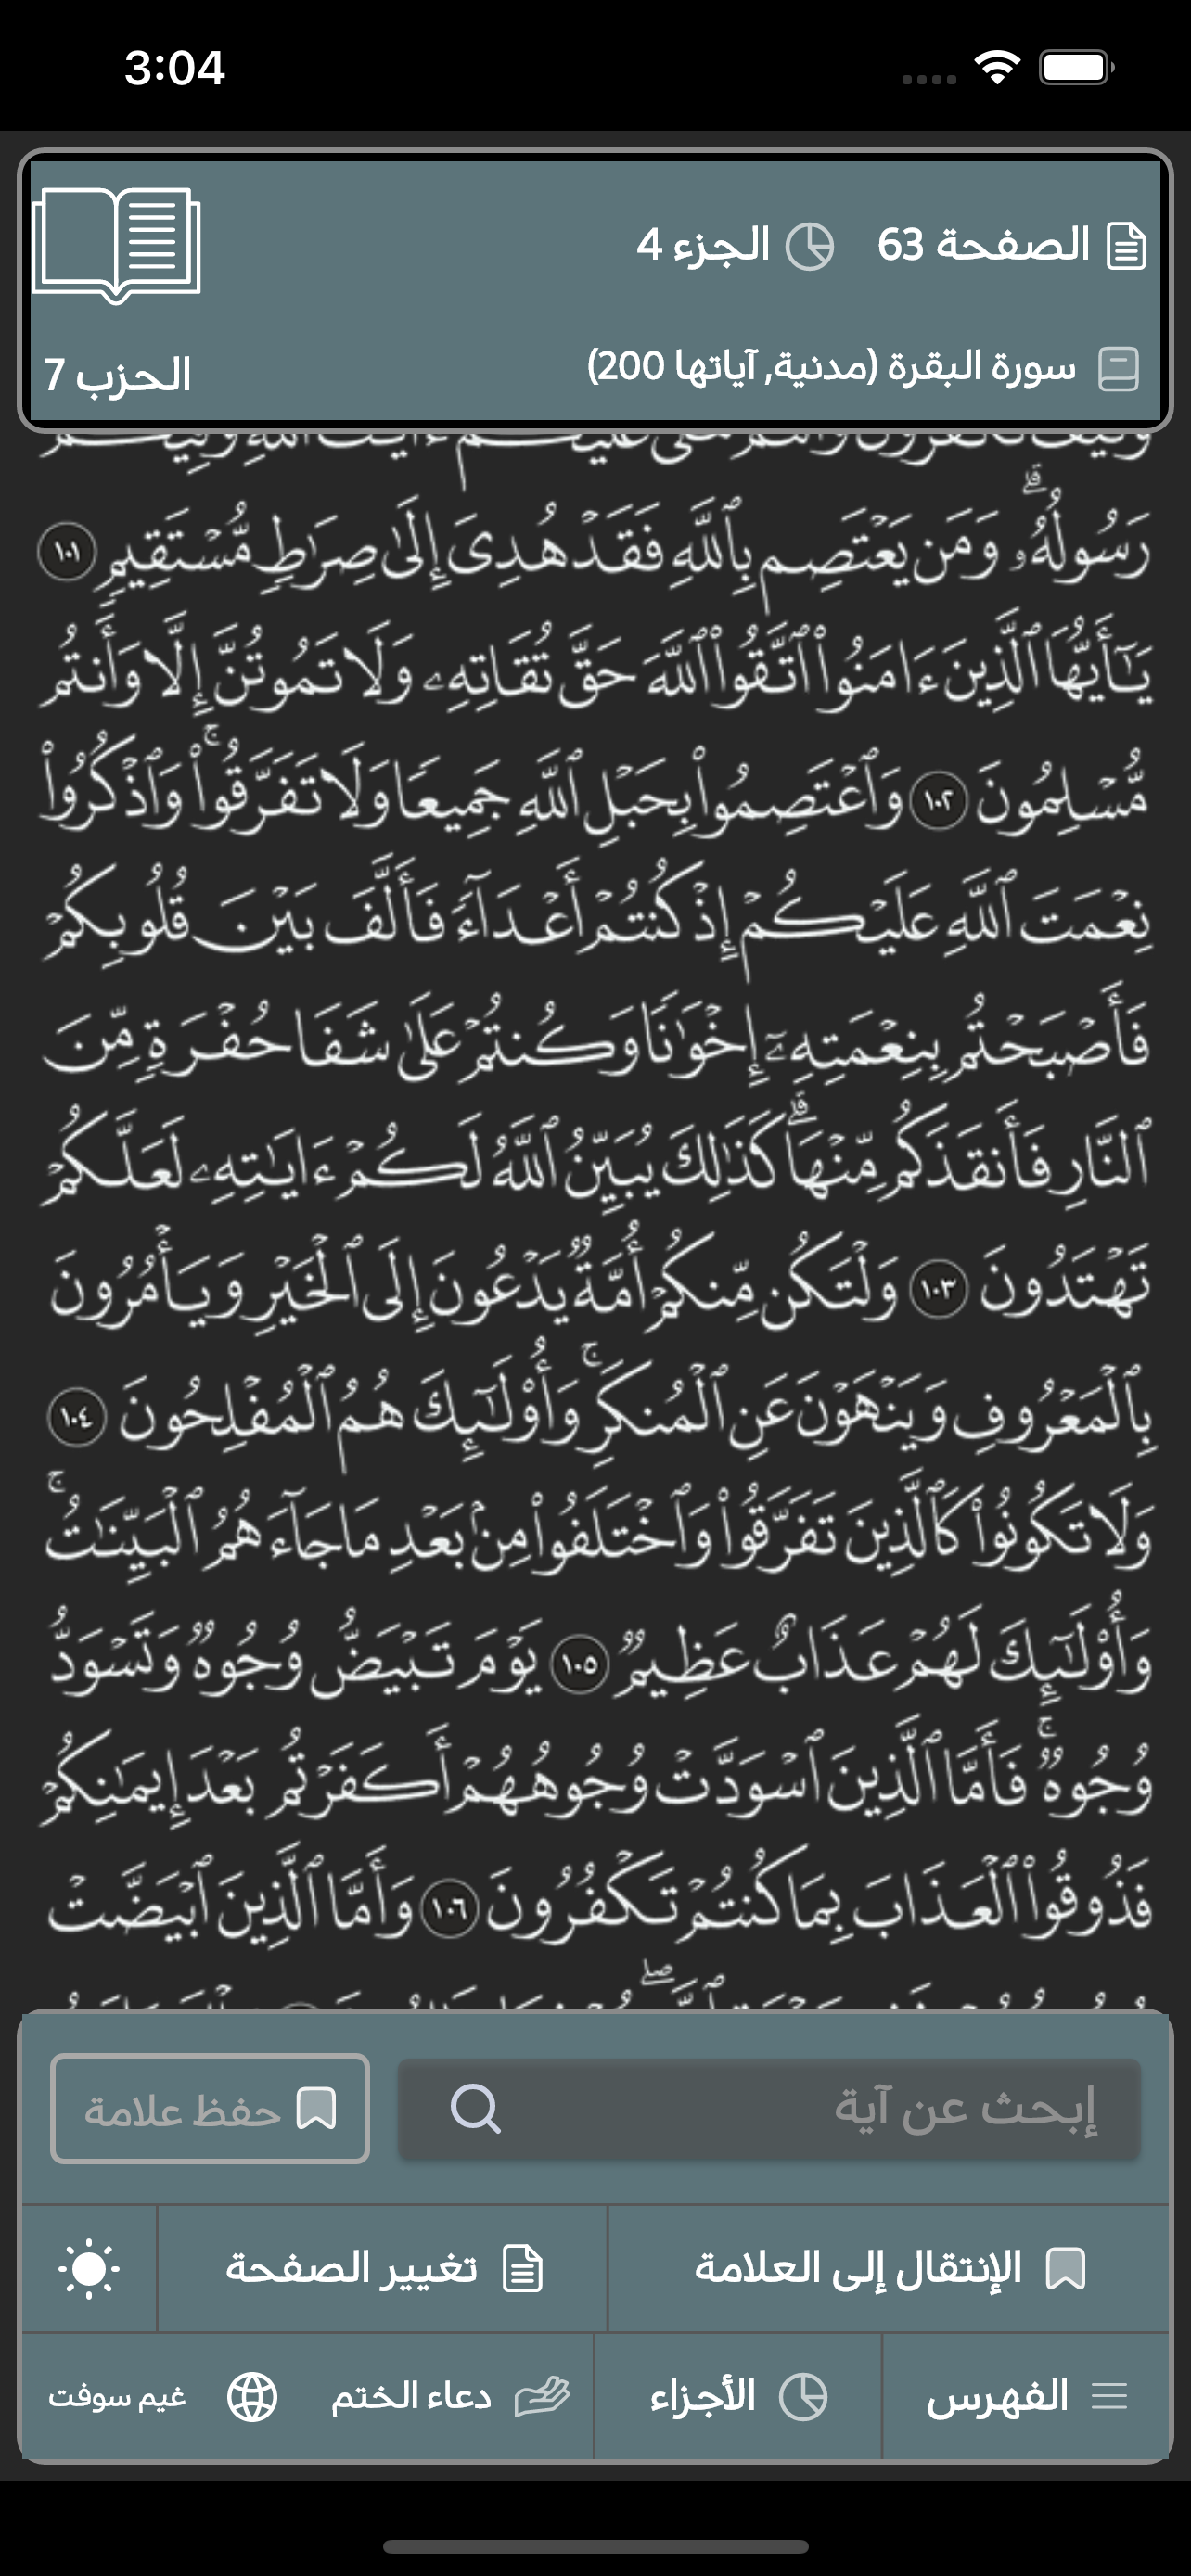 3:04
الصفحة 63 الجزء 4
سورة البقرة (مدنية, آياتها 200) الحزب 7
رَسُولُهُۥۗ وَمَن يَعْتَصِم بِٱللَّهِ فَقَدْ هُدِىَ إِلَىٰ صِرَٰطٍ مُّسْتَقِيمٍ ١٠١
يَـٰٓأَيُّهَا ٱلَّذِينَ ءَامَنُوا۟ ٱتَّقُوا۟ ٱللَّهَ حَقَّ تُقَاتِهِۦ وَلَا تَمُوتُنَّ إِلَّا وَأَنتُم
مُّسْلِمُونَ ١٠٢ وَٱعْتَصِمُوا۟ بِحَبْلِ ٱللَّهِ جَمِيعًا وَلَا تَفَرَّقُوا۟ۚ وَٱذْكُرُوا۟
نِعْمَتَ ٱللَّهِ عَلَيْكُمْ إِذْ كُنتُمْ أَعْدَآءً فَأَلَّفَ بَيْنَ قُلُوبِكُمْ
فَأَصْبَحْتُم بِنِعْمَتِهِۦٓ إِخْوَٰنًا وَكُنتُمْ عَلَىٰ شَفَا حُفْرَةٍ مِّنَ
ٱلنَّارِ فَأَنقَذَكُم مِّنْهَاۗ كَذَٰلِكَ يُبَيِّنُ ٱللَّهُ لَكُمْ ءَايَـٰتِهِۦ لَعَلَّكُمْ
تَهْتَدُونَ ١٠٣ وَلْتَكُن مِّنكُمْ أُمَّةٌ يَدْعُونَ إِلَى ٱلْخَيْرِ وَيَأْمُرُونَ
بِٱلْمَعْرُوفِ وَيَنْهَوْنَ عَنِ ٱلْمُنكَرِۚ وَأُو۟لَـٰٓئِكَ هُمُ ٱلْمُفْلِحُونَ ١٠٤
وَلَا تَكُونُوا۟ كَٱلَّذِينَ تَفَرَّقُوا۟ وَٱخْتَلَفُوا۟ مِنۢ بَعْدِ مَا جَآءَهُمُ ٱلْبَيِّنَـٰتُۚ
وَأُو۟لَـٰٓئِكَ لَهُمْ عَذَابٌ عَظِيمٌ ١٠٥ يَوْمَ تَبْيَضُّ وُجُوهٌ وَتَسْوَدُّ
وُجُوهٌۚ فَأَمَّا ٱلَّذِينَ ٱسْوَدَّتْ وُجُوهُهُمْ أَكَفَرْتُم بَعْدَ إِيمَـٰنِكُمْ
فَذُوقُوا۟ ٱلْعَذَابَ بِمَا كُنتُمْ تَكْفُرُونَ ١٠٦ وَأَمَّا ٱلَّذِينَ ٱبْيَضَّتْ
إبحث عن آية حفظ علامة
الإنتقال إلى العلامة تغيير الصفحة
الفهرس الأجزاء دعاء الختم غيم سوفت